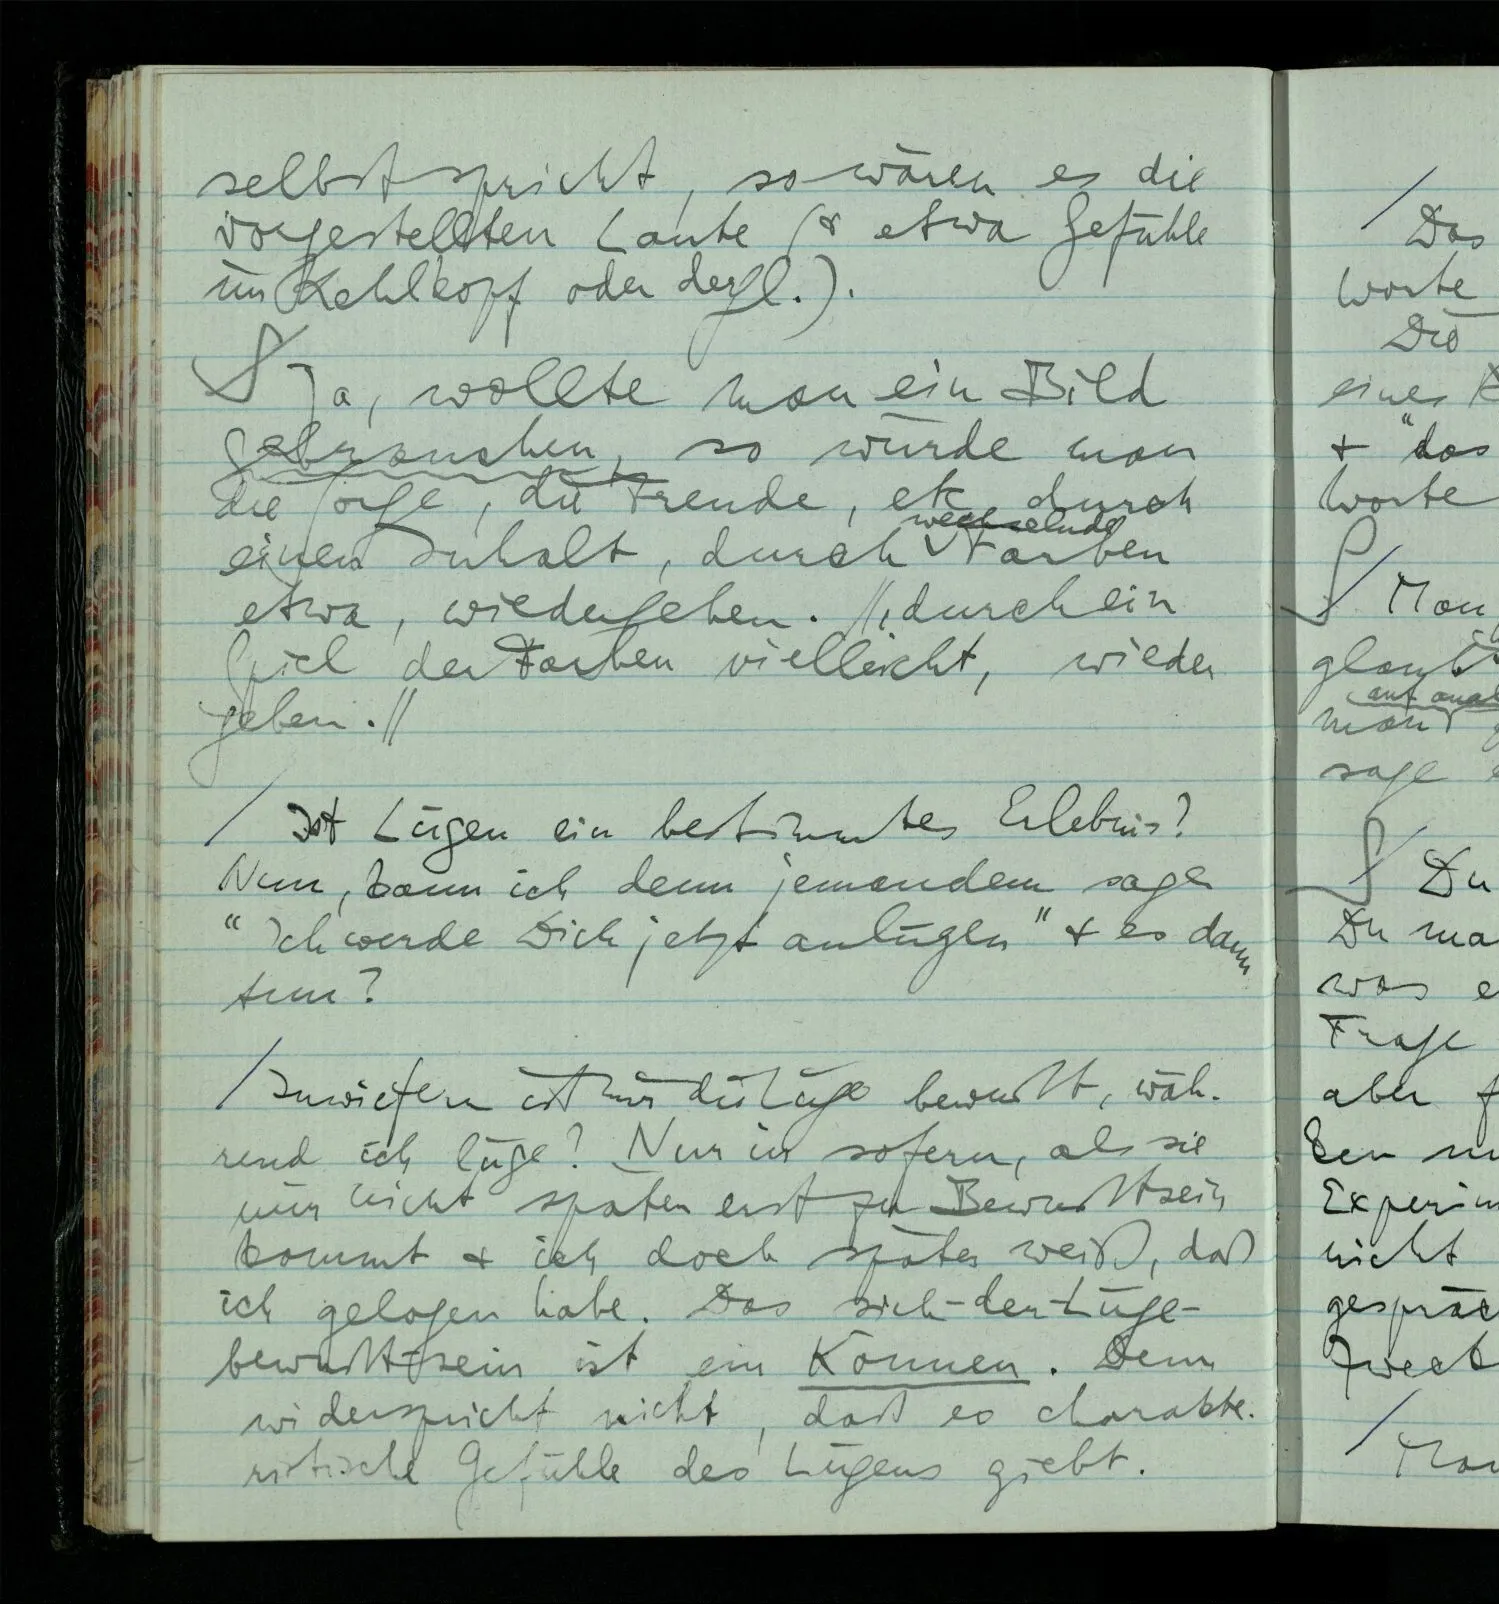 selbst spricht, so wären es die
vorgestellten Laute (& etwa Gefühle
im Kehlkopf oder dergl.).
Ja, wollte man ein Bild
gebrauchen, so würde man
die Sorge, die Freude, etc durch
wechselnde
einen Inhalt, durch Farben
etwa, wiedergeben. //, durch ein
Spiel der Farben vielleicht, wieder
geben.//
/ Ist Lügen ein bestimmtes Erlebnis?
Nun, kann ich denn jemandem sagen
"Ich werde Dich jetzt anlügen" & es dann
tun?
/ Inwiefern ist mir die Lüge bewußt, wäh-
rend ich lüge? Nur in sofern, als sie
mir nicht später erst zu Bewußtsein
kommt & ich doch später weiß, daß
ich gelogen habe. Das sich-der-Lüge-
bewußt-sein ist ein Können. Dem
widerspricht nicht, daß es charakte-
ristische Gefühle des Lügens giebt.
/
Das
Worte
Die
eines
& "das
Worte
/ Man
glaubt
man
sage
/ Du
Du ma
was e
Frage
aber f
den
Experim
nicht
gespräc
Zweck
/ Man